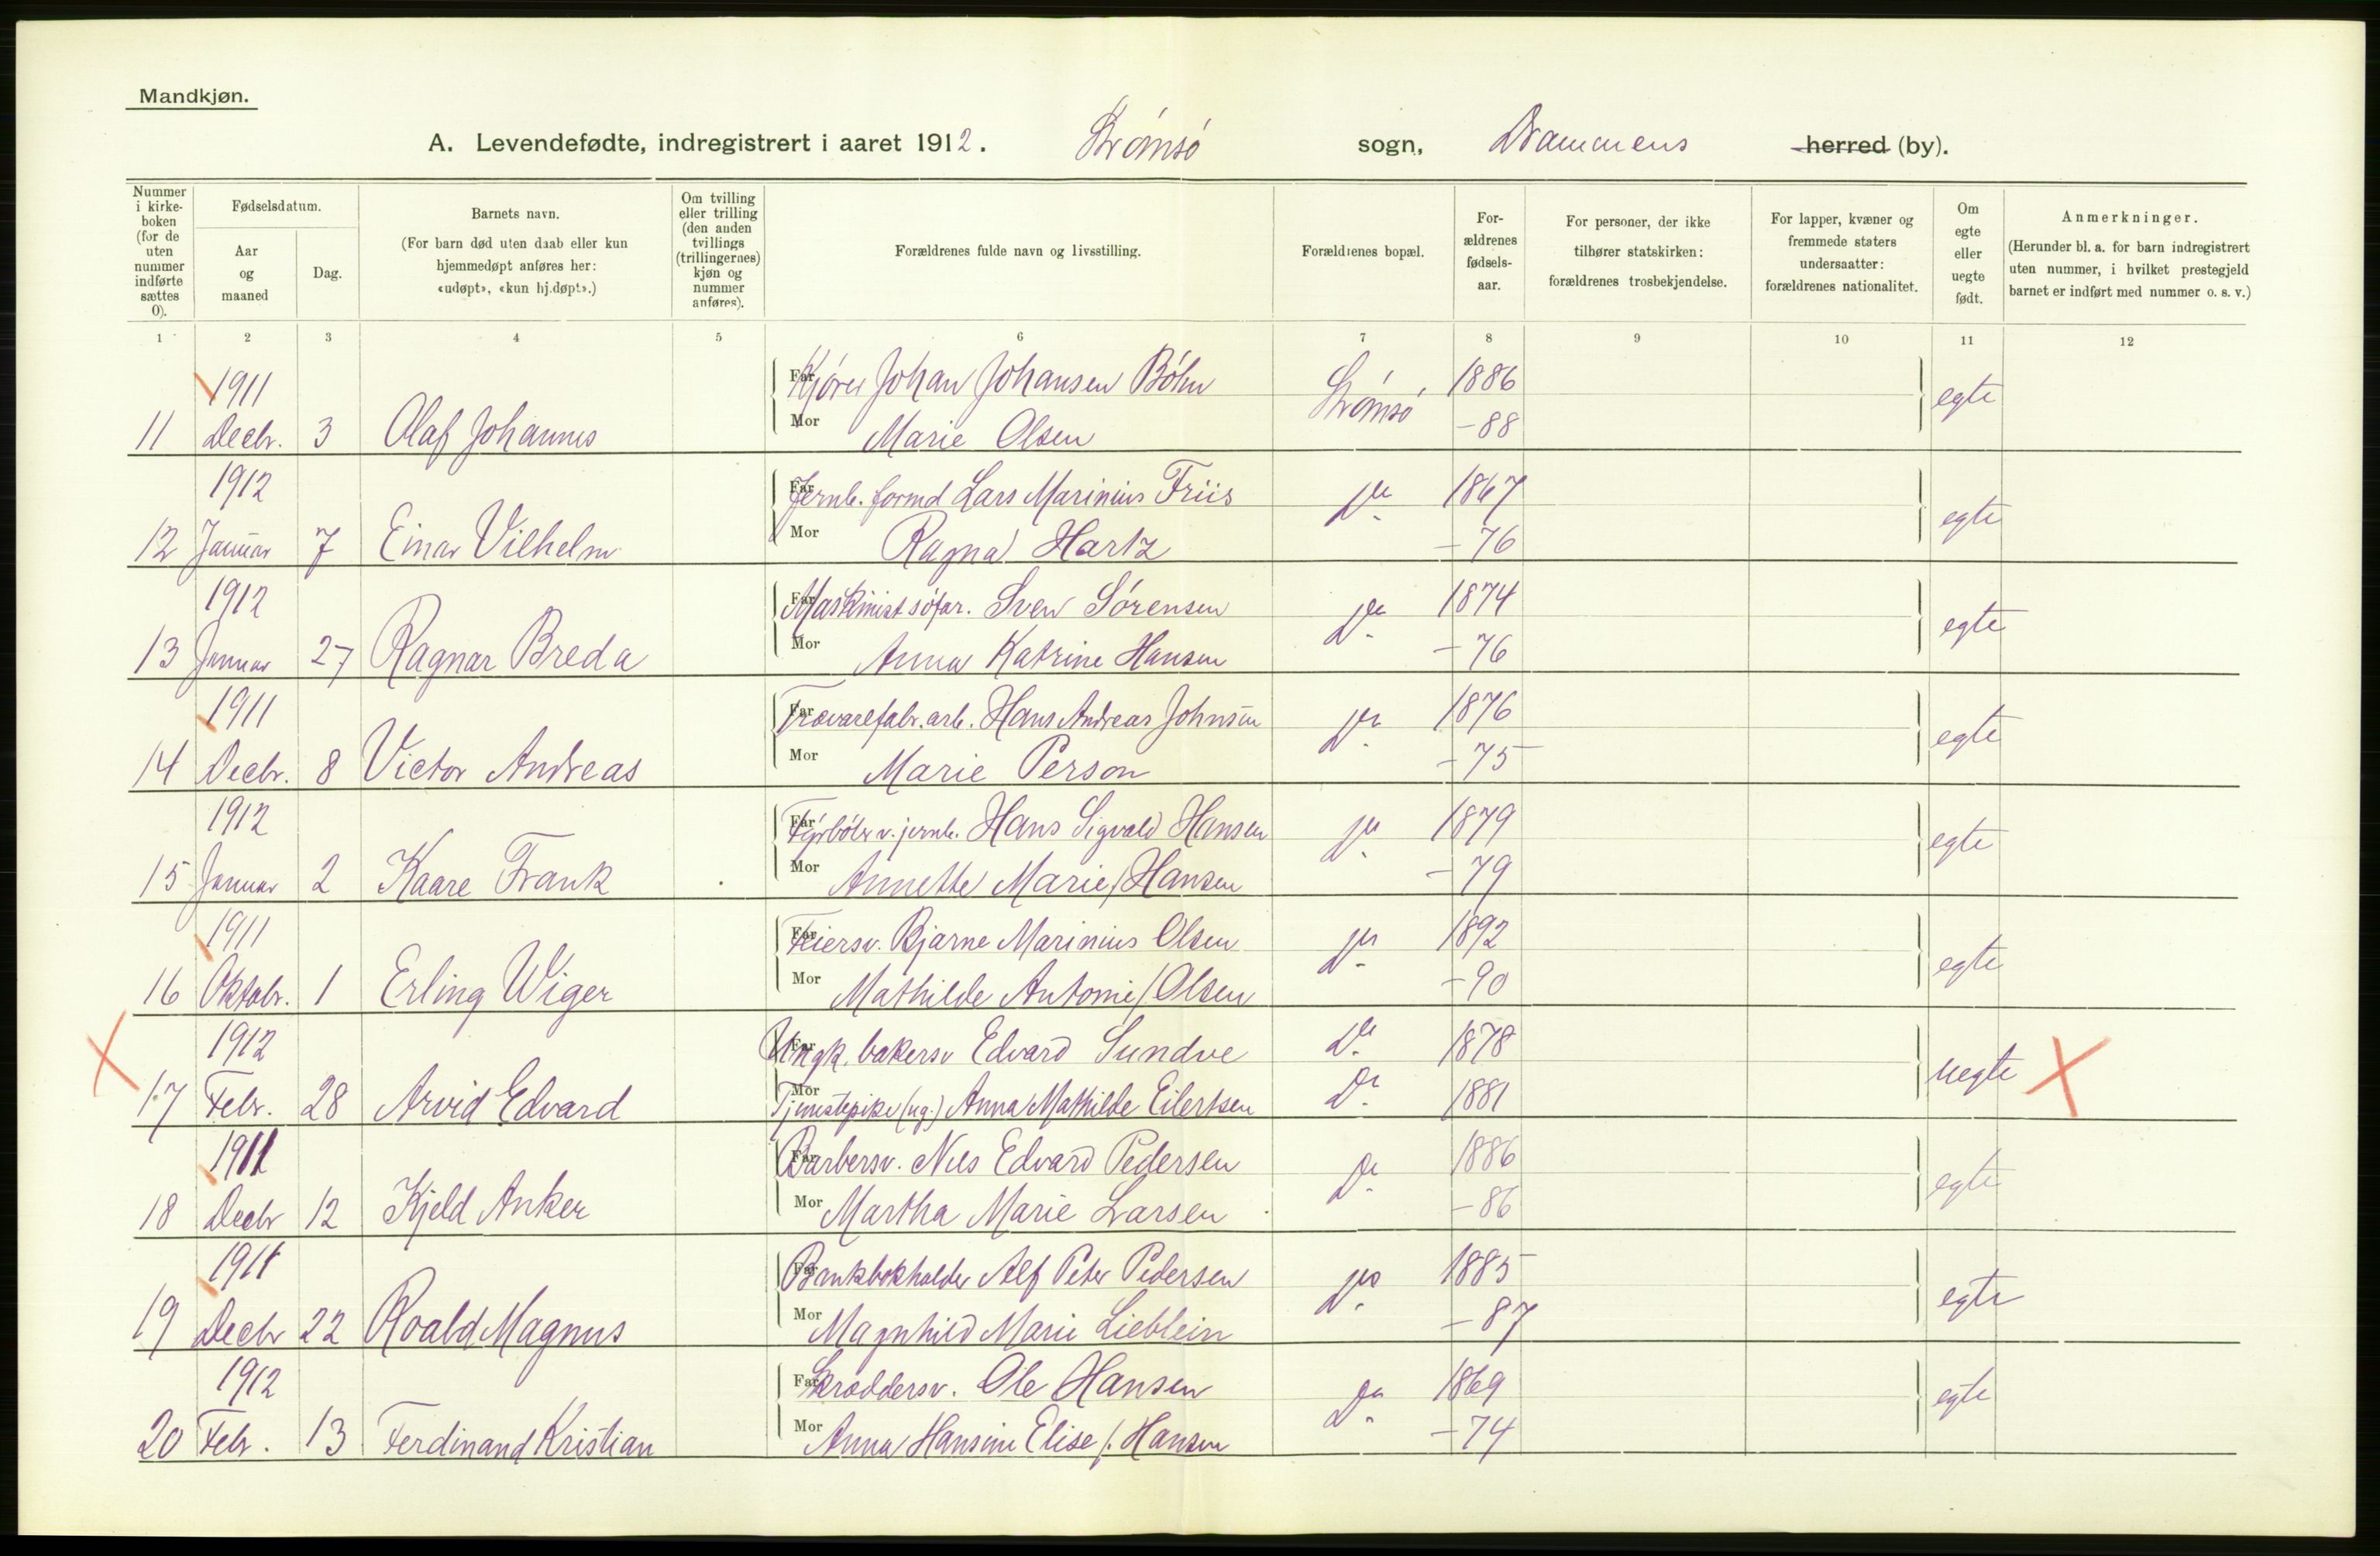 Mandkjøn.
A. Levendefødte, indregistrert i aaret 1912. Strømsø sogn, Drammens herred (by).
Nummer i kirke-boken (for de uten nummer indførte sættes 0).
Fødselsdatum.
Aar og maaned
Dag.
Barnets navn.
(For barn død uten daab eller kun hjemmedøpt anføres her: «udøpt», «kun hj.døpt».)
Om tvilling eller trilling (den anden tvillings (trillingernes) kjøn og nummer anføres).
Forældrenes fulde navn og livsstilling.
Forældrenes bopæl.
For-ældrenes fødsels-aar.
For personer, der ikke tilhører statskirken: forældrenes trosbekjendelse.
For lapper, kvæner og fremmede staters undersaatter: forældrenes nationalitet.
Om egte eller uegte født.
Anmerkninger.
(Herunder bl. a. for barn indregistrert uten nummer, i hvilket prestegjeld barnet er indført med nummer o. s. v.)
1 2 3 4 5 6 7 8 9 10 11 12
1911 Far Kjører Johan Johansen Böhn Strømsø 1886 egte
11 Decbr. 3 Olaf Johannes Mor Marie Olsen -88
1912 Far Jernb. formd Lars Marinius Friis Do 1867 egte
12 Januar 7 Einar Vilhelm Mor Ragna Hartz -76
1912 Far Maskinist søfar. Sven Sørensen Do 1874 egte
13 Januar 27 Ragnar Breda Mor Anna Katrine Hansen -76
1911 Far Trævarefabr. arb. Hans Andreas Johnsen Do 1876 egte
14 Decbr. 8 Victor Andreas Mor Marie Person -75
1912 Far Fyrbøter v. jernb. Hans Sigvald Hansen Do 1879 egte
15 Januar 2 Kaare Frank Mor Annette Marie / Hansen -79
1911 Far Feiersv. Bjarne Marinius Olsen Do 1892 egte
16 Oktobr. 1 Erling Wiger Mor Mathilde Antonie / Olsen -90
1912 Far Ungk. bakersv Edvard Sundve Do 1878 uegte
17 Febr. 28 Arvid Edvard Mor Tjenestepike (ug.) Anna Mathilde Eilertsen Do 1881
1911 Far Barbersv. Nils Edvard Pedersen Do 1886 egte
18 Decbr 12 Kjeld Anker Mor Martha Marie Larsen -86
1911 Far Bankbokholder Alf Peter Pedersen Do 1885 egte
19 Decbr 22 Roald Magnus Mor Magnhild Marie Lieblein -87
1912 Far Skræddersv. Ole Hansen Do 1869 egte
20 Febr. 13 Ferdinand Kristian Mor Anna Hansine Elise f. Hansen -74